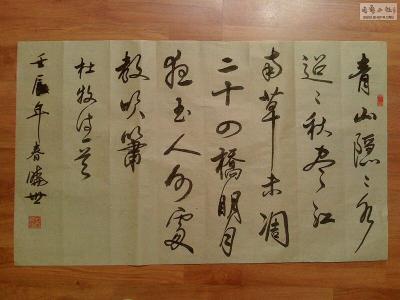 青山隱〻水
迢〻秋盡江
南草未凋
二十四橋明月
夜玉人何處
教吹簫
杜牧
壬辰年春